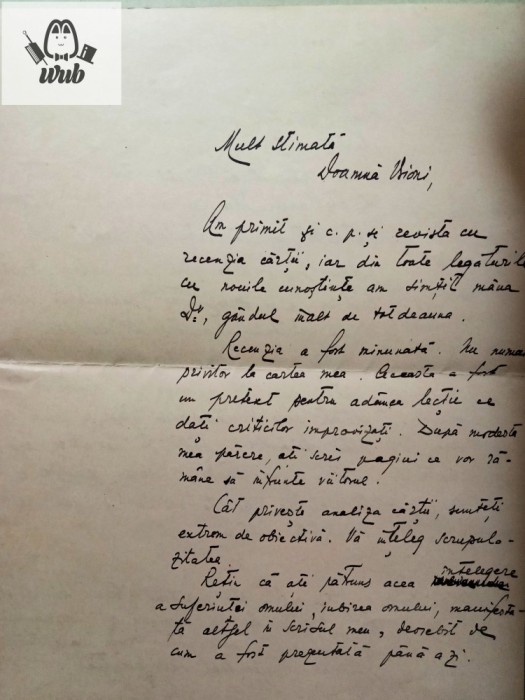 wub
Mult stimată
Doamnă Vioni,
Am primit și c. p. și revista cu
recenzia cărții, iar din toate legăturile
cu nouile cunoștințe am simțit mâna
Dvs, gândul înalt de totdeauna.
Recenzia a fost minunată. Nu numai
privitor la cartea mea. Aceasta a fost
un pretext pentru adânca lecție ce
dați criticilor improvizați. După modesta
mea părere, ați scris pagini ce vor ră-
mâne să înfrunte viitorul.
Cât privește analiza cărții, sunteți
extrem de obiectivă. Vă înțeleg scrupulo-
zitatea.
Rețin că ați pătruns acea înțelegere
a suferinței omului, iubirea omului, manifesta-
tă altfel în scrisul meu, deosebit de
cum a fost prezentată până azi.